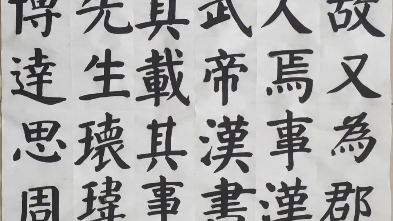 故又為郡
人焉事漢
武帝漢書
具載其事
先生瓌瑋
博達思周